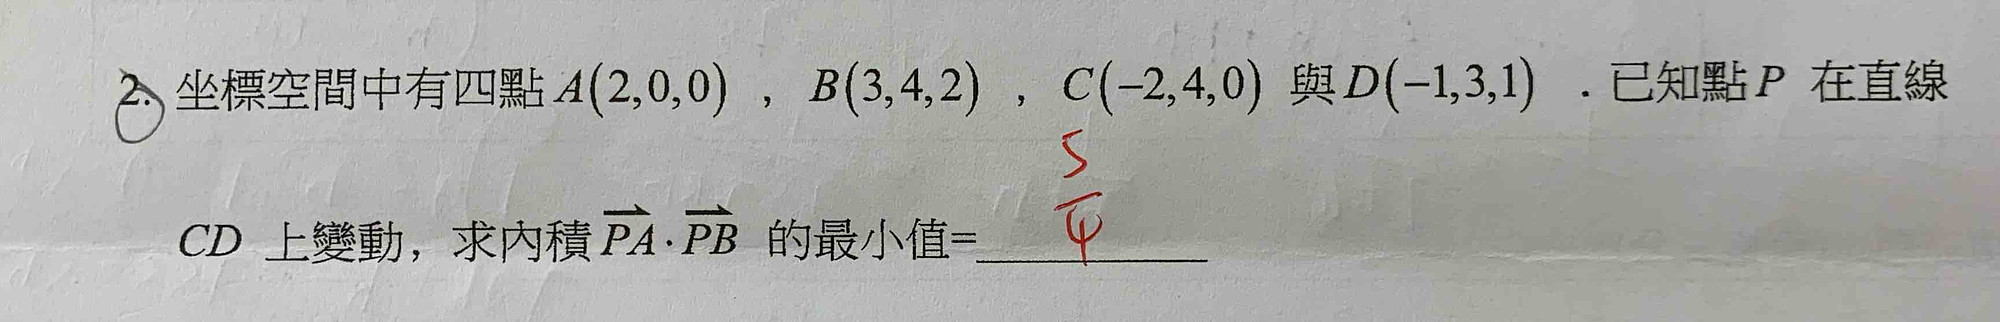 2. 坐標空間中有四點 A(2,0,0) , B(3,4,2) , C(-2,4,0) 與 D(-1,3,1) . 已知點 P 在直線
CD 上變動, 求內積 \overrightarrow{PA}·\overrightarrow{PB} 的最小值= 5/4